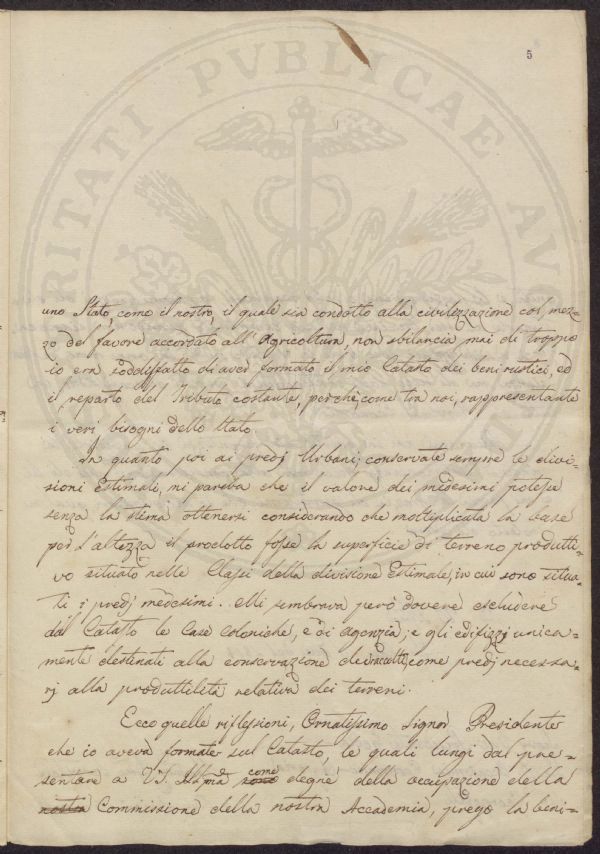 5
uno Stato, come il nostro, il quale sia condotto alla civilizzazione col, mez-
zo del favore accordato all'Agricoltura, non sbilancia mai di troppo
io era soddisfatto di aver formato il mio Catasto dei beni rustici, ed
il reparto del Tributo costante, perchè, come tra noi, rappresentante
i veri bisogni dello Stato.
In quanto poi ai predj Urbani, conservate sempre le divi-
sioni Estimali, mi pareva che il valore dei medesimi potesse
senza la stima ottenersi considerando che moltiplicata la base
per l'altezza il prodotto fosse la superficie di terreno produtti-
vo situato nelle Classi della divisione Estimale, in cui sono situa-
ti i predj medesimi. Mi sembrava però dovere escludere
dal Catasto le Case Coloniche, e di Agenzia, e gli edifizj unica-
mente destinati alla conservazione dei raccolti, come predj necessa-
rj alla produttilità relativa dei terreni.
Ecco quelle riflessioni, Ornatissimo Signor Presidente
che io aveva formate sul Catasto, le quali lungi dal pre-
sentare a V.S. Illma come degne della occupazione della
nostra Commissione della nostra Accademia, prego la beni-
RITATI PVBLICAE AVG